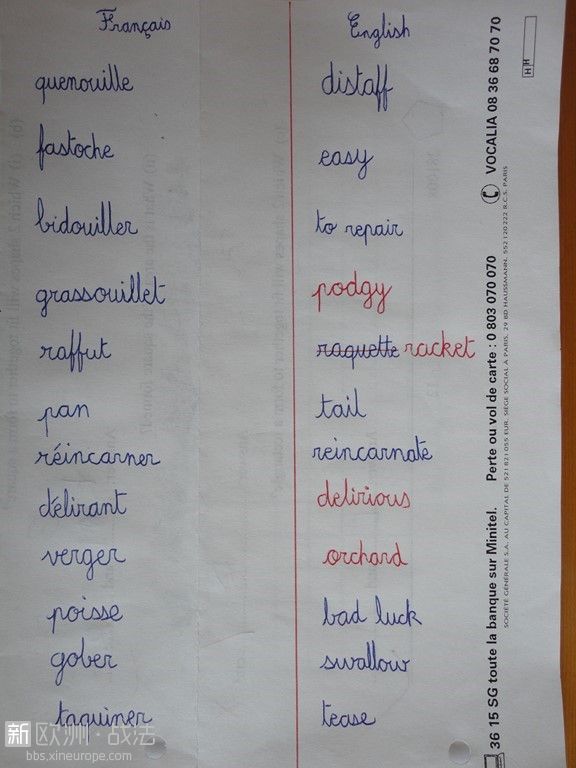 Français English
quenouille distaff
fastoche easy
bidouiller to repair
grassouillet podgy
raffut raquette racket
pan tail
réincarner reincarnate
délirant delirious
verger orchard
poisse bad luck
gober swallow
taquiner tease
36 15 SG toute la banque sur Minitel. Perte ou vol de carte : 0 803 070 070 VOCALIA 08 36 68 70 70
SOCIÉTÉ GÉNÉRALE S.A. AU CAPITAL DE 521 821 055 EUR. SIÈGE SOCIAL À PARIS, 29 BD HAUSSMANN. 552 120 222 R.C.S. PARIS
HH
新欧洲·战法
bbs.xineurope.com